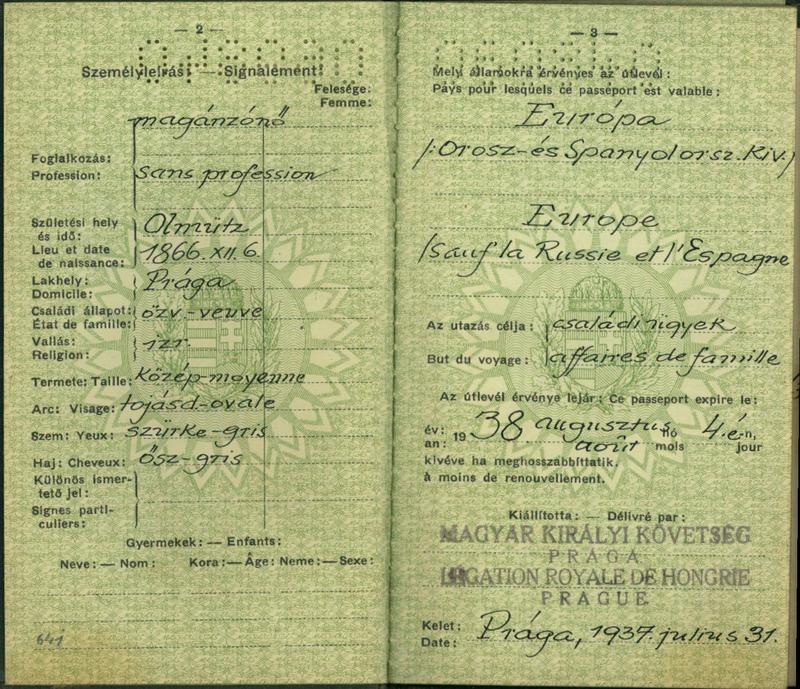 — 2 —
Személyleírás: — Signalement:
Felesége:
Femme:
magánzónő
Foglalkozás:
Profession: sans profession
Születési hely
és idő: Olmütz
Lieu et date
de naissance: 1866. XII. 6.
Lakhely: Prága
Domicile:
Családi állapot: özv.-veuve
État de famille:
Vallás: izr.
Religion:
Termete: Taille: közép-moyenne
Arc: Visage: tojásd-ovale
Szem: Yeux: szürke-gris
Haj: Cheveux: ősz-gris
Különös ismer-
tető jel:
Signes parti-
culiers:
Gyermekek: — Enfants:
Neve: — Nom: Kora: — Âge: Neme: — Sexe:
641
— 3 —
Mely államokra érvényes az útlevél:
Pays pour lesquels ce passeport est valable:
Európa
/: Orosz-és Spanyolorsz. Kiv.)
Europe
/sauf la Russie et l'Espagne
Az utazás célja: családi ügyek
But du voyage: affaires de famille
Az útlevél érvénye lejár: Ce passeport expire le:
év: augusztus hó 4.-é-n,
an: 19 38 août mois jour
kivéve ha meghosszabbíttatik.
à moins de renouvellement.
Kiállította: — Délivré par:
MAGYAR KIRÁLYI KÖVETSÉG
PRÁGA
LÉGATION ROYALE DE HONGRIE
PRAGUE
Kelet:
Date: Prága, 1937. julius 31.